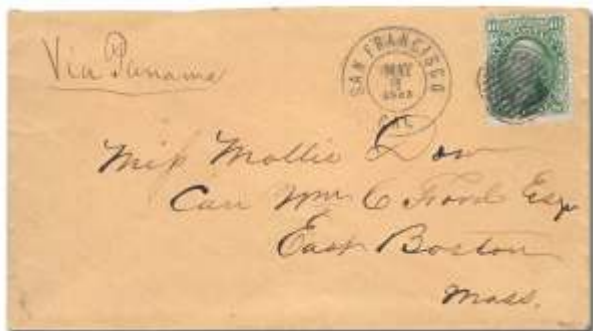 Via Panama
SAN FRANCISCO
MAY
CAL
10 10
Miss Mollie Dow
Care Wm C Ford Esq
East Boston
Mass.